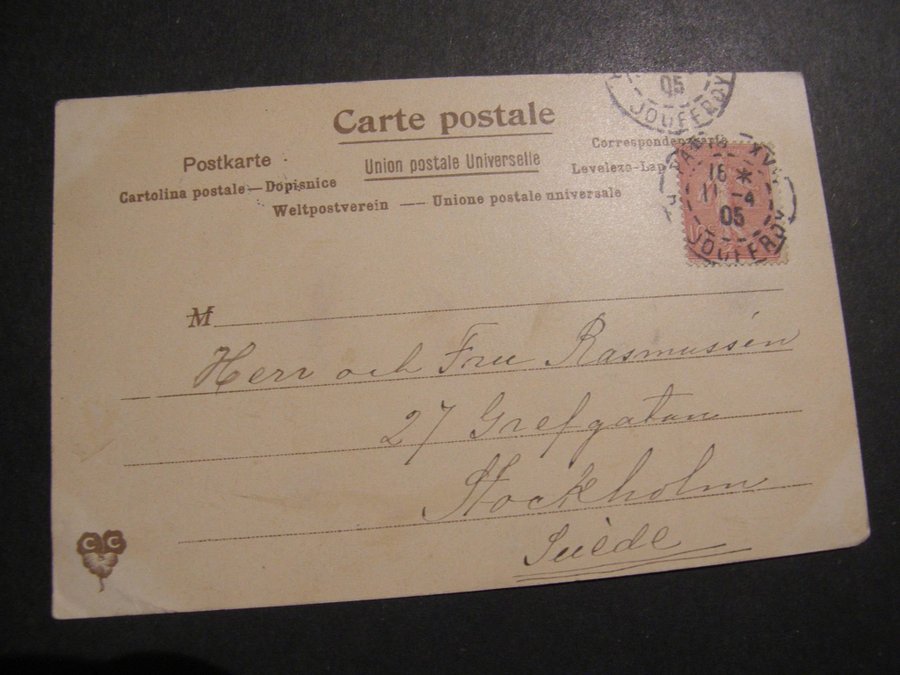 Carte postale
Postkarte
Union postale Universelle
Correspondenzkarte
Cartolina postale — Dopisnice
Levelezo-Lap
Weltpostverein — Unione postale universale
05
JOUFFROY
PARIS XVII
16 *
11 -4
05
JOUFFROY
M
Herr och Fru Rasmussén
27 Grefgatan
Stockholm
Suède
C C